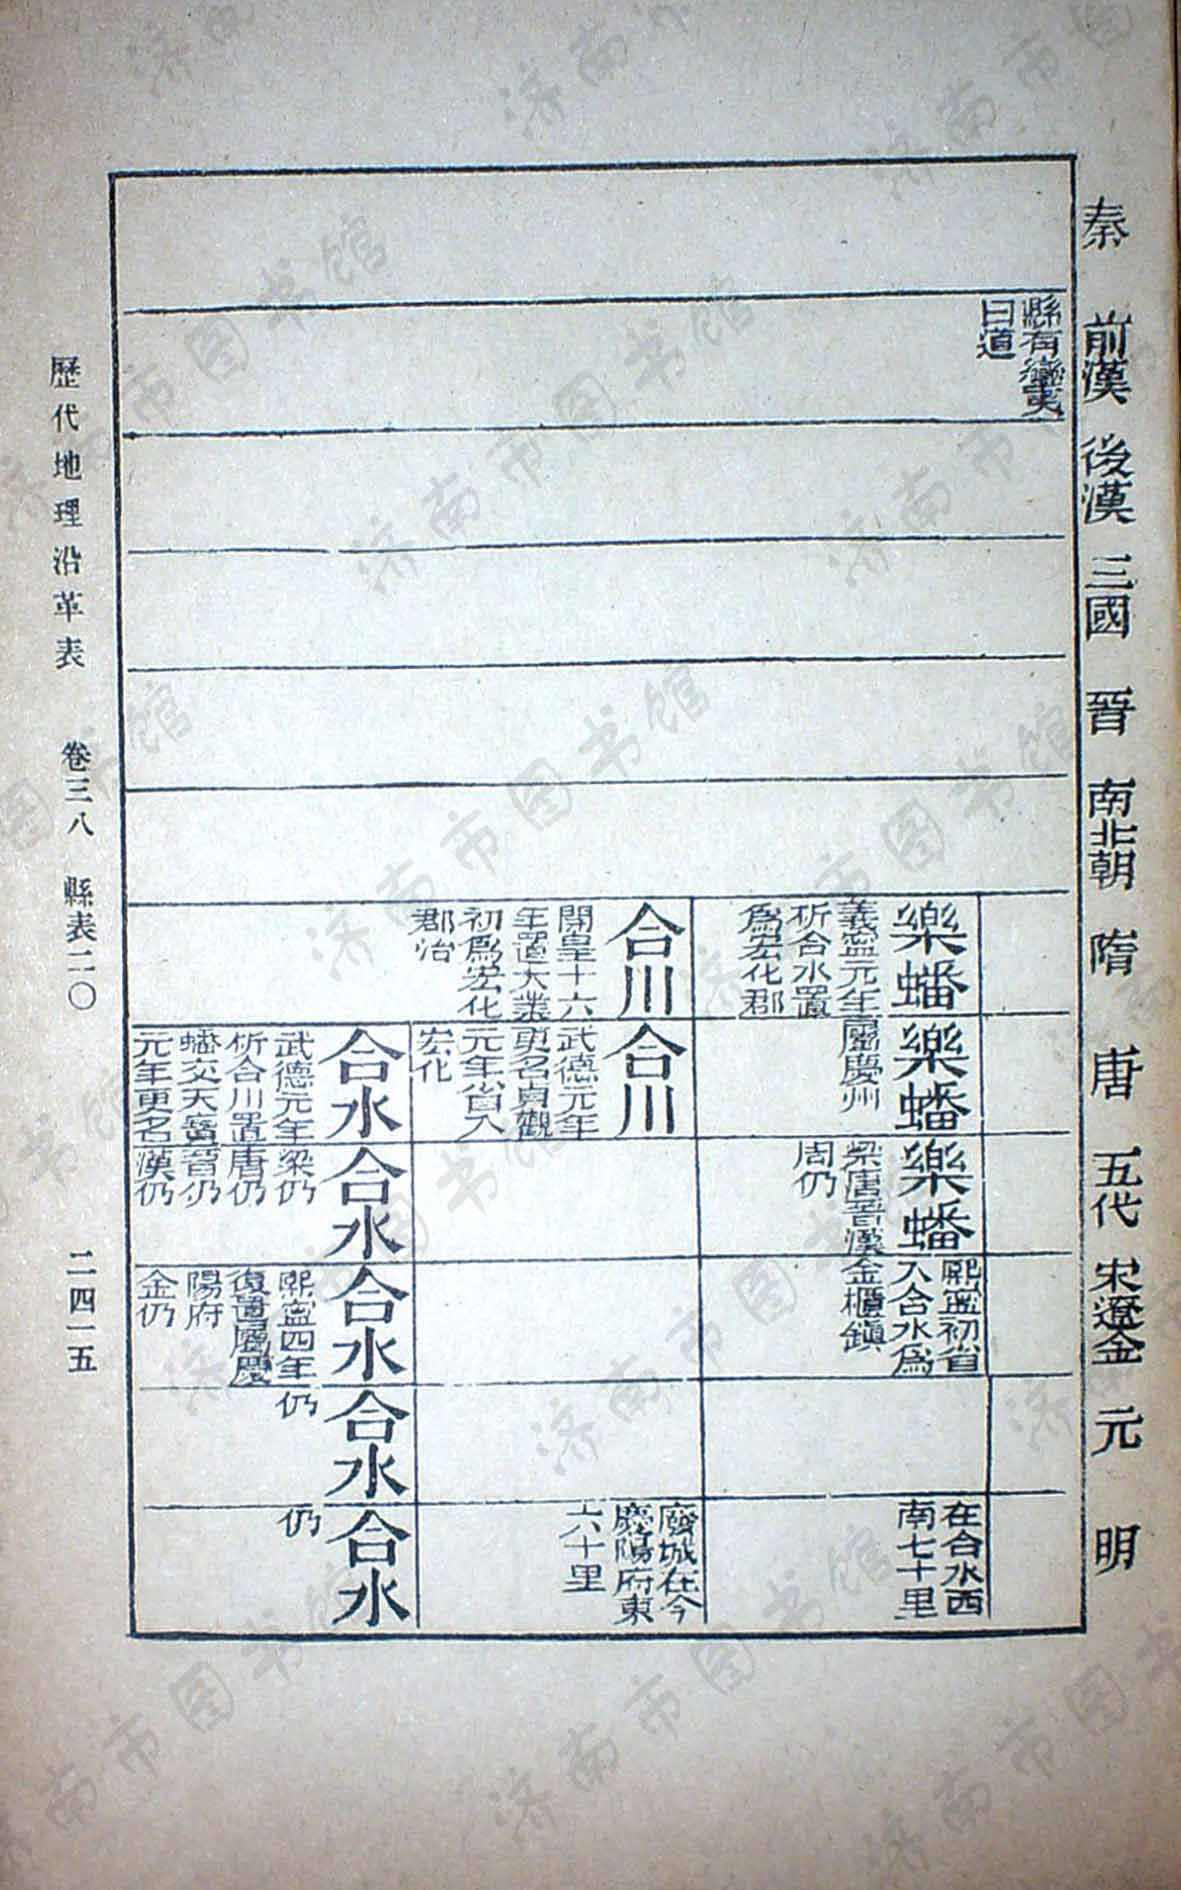 秦
前漢
後漢
三國
晉
南北朝
隋
唐
五代
宋遼金
元
明
縣有蠻夷
曰道
樂蟠
義寧元年
析合水置
爲宏化郡
樂蟠
屬慶州
樂蟠
梁唐晉漢
周仍
熙寧初省
入合水爲
金櫃鎮
在合水西
南七十里
合川
開皇十六
年置大業
初爲宏化
郡治
合川
武德元年
更名貞觀
元年省入
宏化
廢城在今
慶陽府東
六十里
合水
武德元年
析合川置
蟠交天寶
元年更名
合水
梁仍
唐仍
晉仍
漢仍
合水
熙寧四年
復置屬慶
陽府
金仍
合水
仍
合水
仍
歷代地理沿革表 卷三八 縣表二〇 二四一五
济南市图书馆